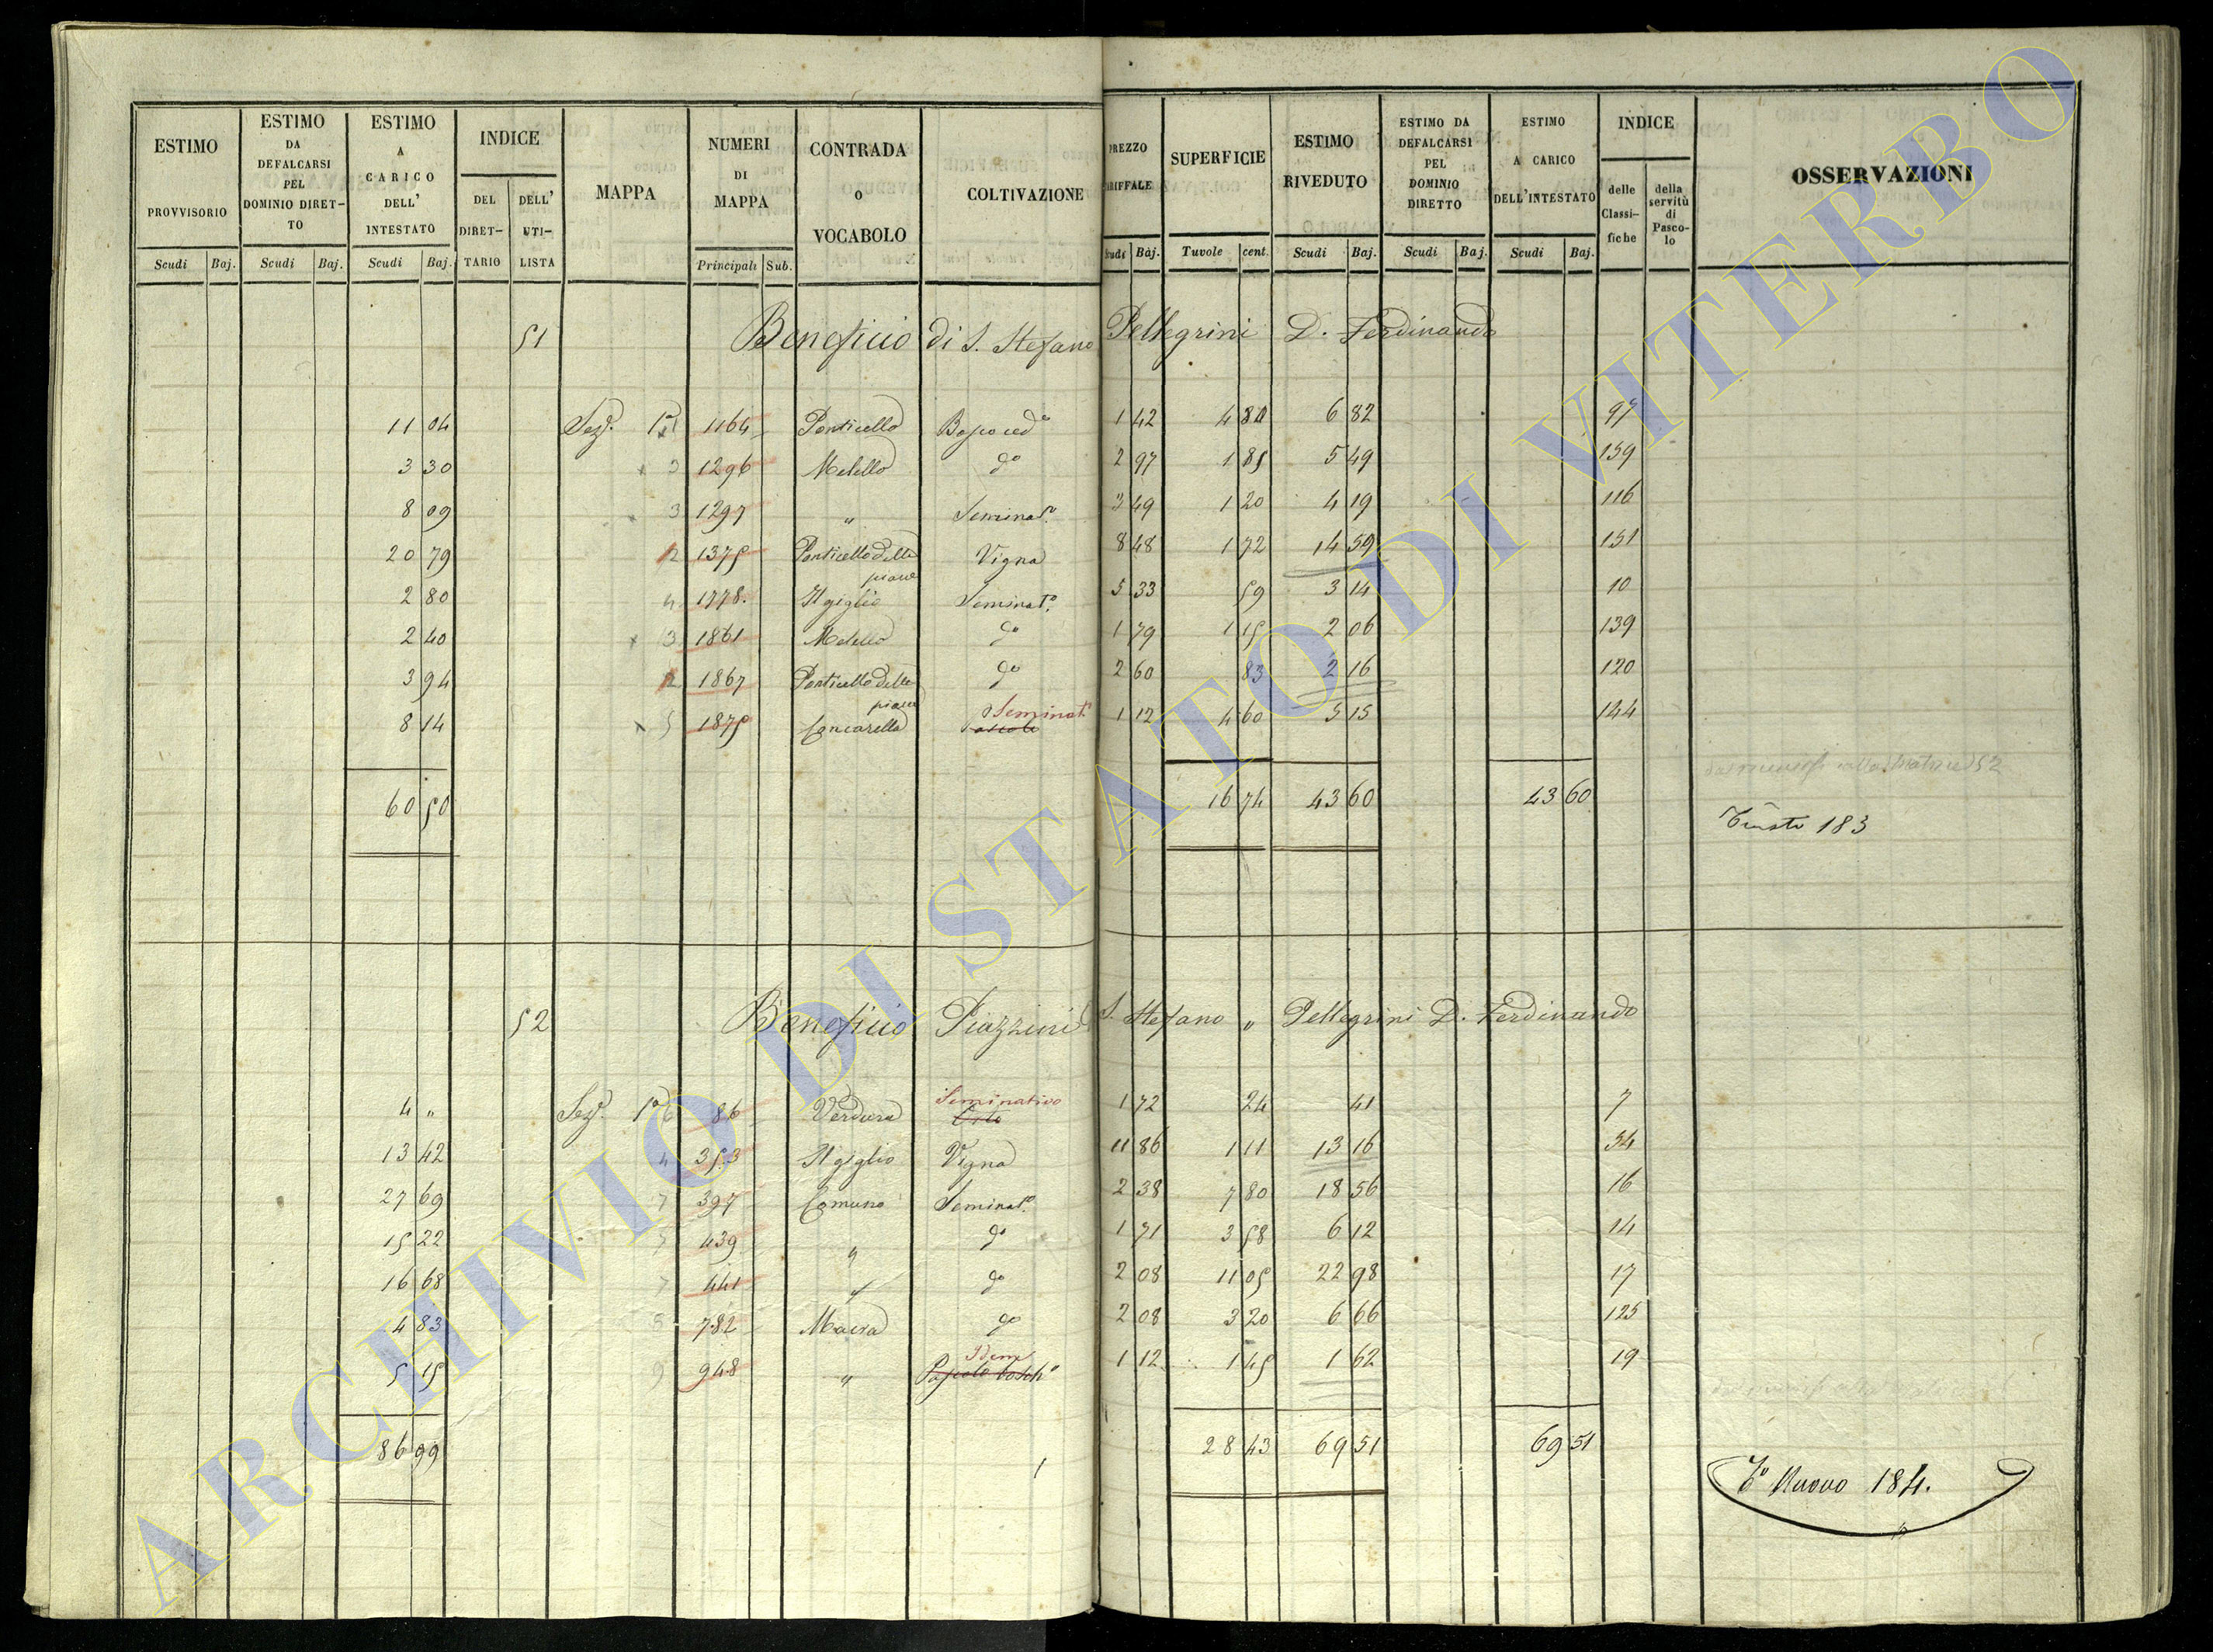 ESTIMO PROVVISORIO Scudi Baj. ESTIMO DA DEFALCARSI PEL DOMINIO DIRETTO Scudi Baj. ESTIMO A CARICO DELL' INTESTATO Scudi Baj. INDICE DEL DIRETTARIO DELL' UTILISTA MAPPA NUMERI DI MAPPA Principali Sub. CONTRADA o VOCABOLO COLTIVAZIONE PREZZO TARIFFALE Scudi Baj. SUPERFICIE Tuvole cent. ESTIMO RIVEDUTO Scudi Baj. ESTIMO DA DEFALCARSI PEL DOMINIO DIRETTO Scudi Baj. ESTIMO A CARICO DELL'INTESTATO Scudi Baj. INDICE delle Classifiche della servitù di Pascolo OSSERVAZIONI
51 Beneficio di S. Stefano Pellegrini D. Ferdinando
11 04 Sez. 1a 1 1164 Ponticello Bosco ced° 1 42 4 80 6 82 97
3 30 3 1296 Metello do 2 97 1 85 5 49 159
8 09 3 1297 " Seminat° 3 49 1 20 4 19 116
20 79 2 1375 Ponticello della piave Vigna 8 48 1 72 14 59 151
2 80 4 1778. Il giglio Seminat° 5 33 59 3 14 10
2 40 3 1861 Metello do 1 79 1 15 2 06 139
3 94 2 1867 Ponticello della piave do 2 60 83 2 16 120
8 14 5 1875 Concarella Seminat° Pascolo 1 12 4 60 5 15 144
60 50 16 74 43 60 43 60
183
52 Beneficio Piazzini S. Stefano " Pellegrini D. Ferdinando
4 " Sez. 1a 6 86 Verdura Seminativo Orto 1 72 24 41 7
13 42 4 353 Il giglio Vigna 11 86 1 11 13 16 34
27 69 7 397 Comuno Seminat° 2 38 7 80 18 56 16
15 22 7 439 " do 1 71 3 58 6 12 14
16 68 7 441 " do 2 08 11 05 22 98 17
4 83 8 782 Macra do 2 08 3 20 6 66 125
5 15 9 948 " Idem Pascolo bosch° 1 12 1 45 1 62 19
86 99 28 43 69 51 69 51
T° Nuovo 184.
ARCHIVIO DI STATO DI VITERBO